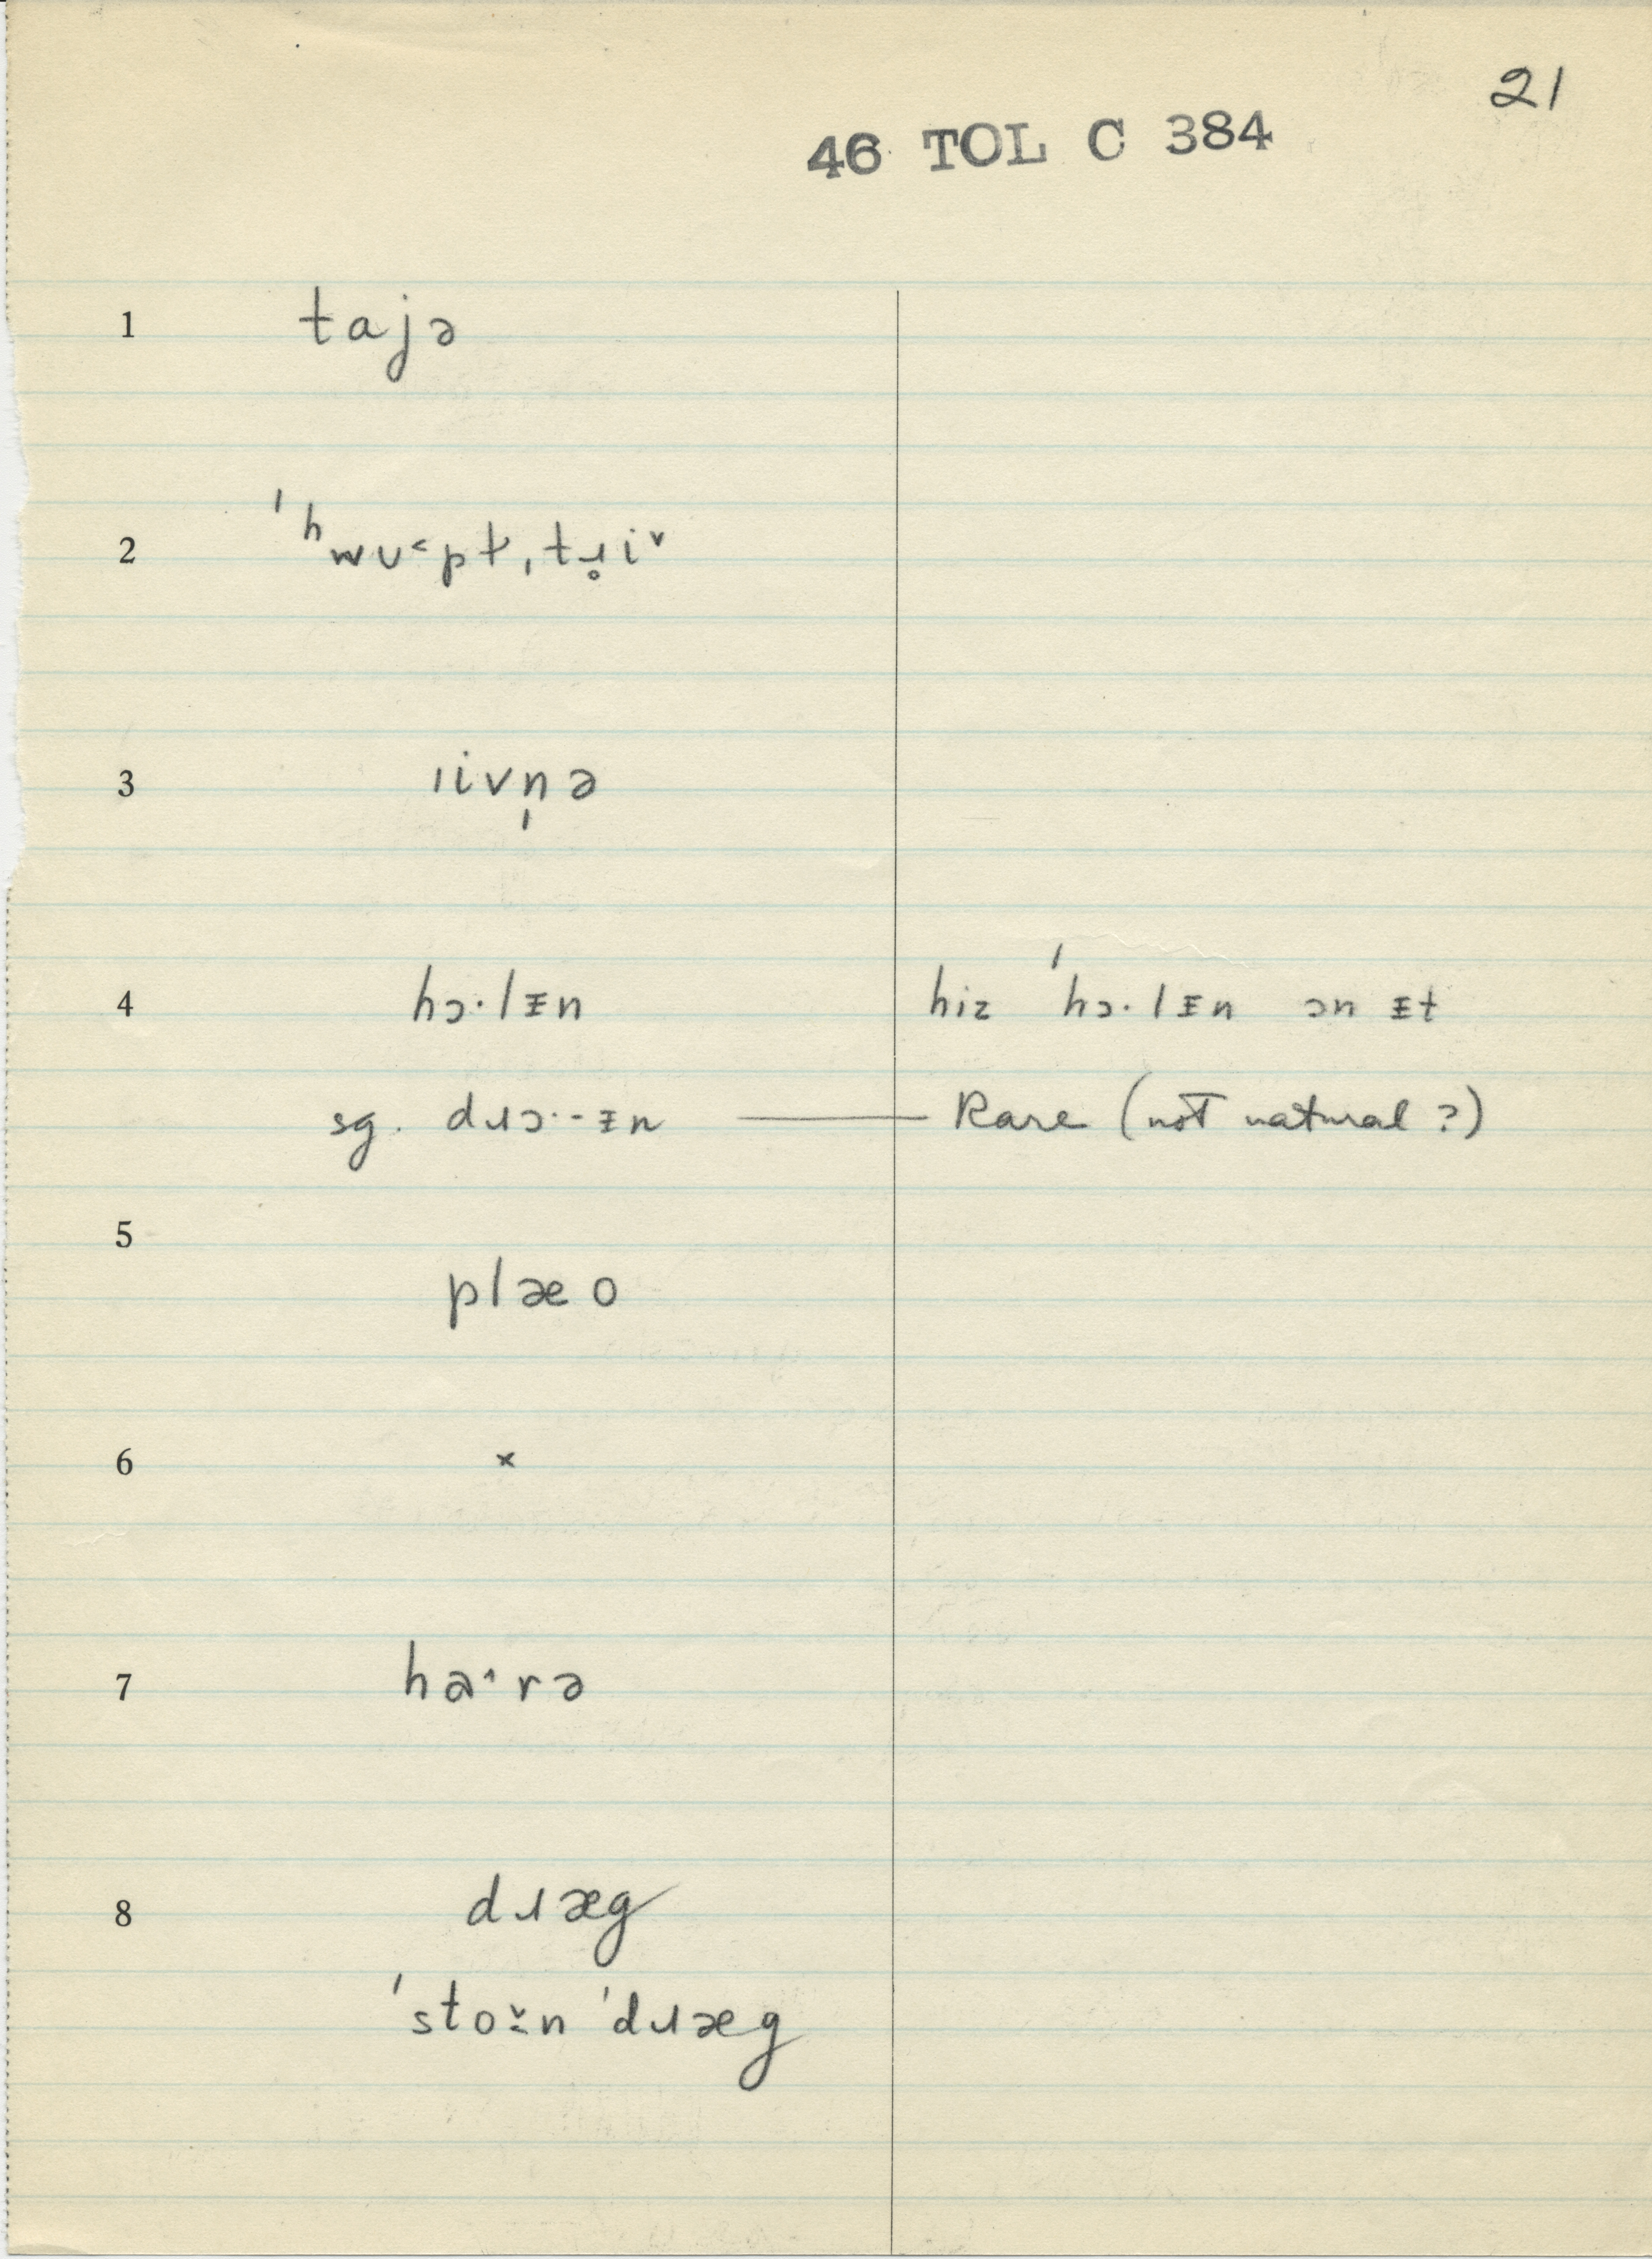 21
46 TOL C 384
1 tajə
2 ˈʰwʊ˂pt̵ˌtɹ̥i˅
3 ɪivn̩ə
4 hɔ·lᵻn hiz ˈhɔ·lᵻn ɔn ᵻt
sg. dɹɔ··-ᵻn — Rare (not natural ?)
5 plæo
6 ×
7 ha˄rə
8 dɹæg
ˈsto˅̱n ˈdɹæg